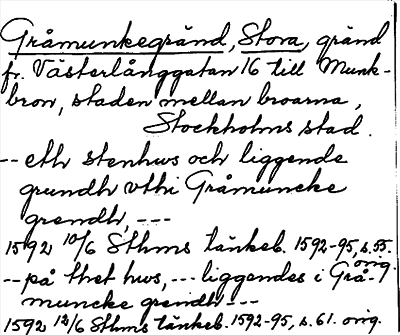 Gråmunkegränd, Stora, gränd
fr. Västerlånggatan 16 till Munk-
bron, staden mellan broarna,
Stockholms stad.
-- eth stenhws och liggende
grundh vthi Gråmuncke
grendh, ---
1592 10/6 Sthms tänkeb. 1592-95, s. 55.
orig.
-- på thet hws, --- liggendes i Grå-
muncke grendh ---
1592 12/6 Sthms tänkeb. 1592-95, s. 61. orig.